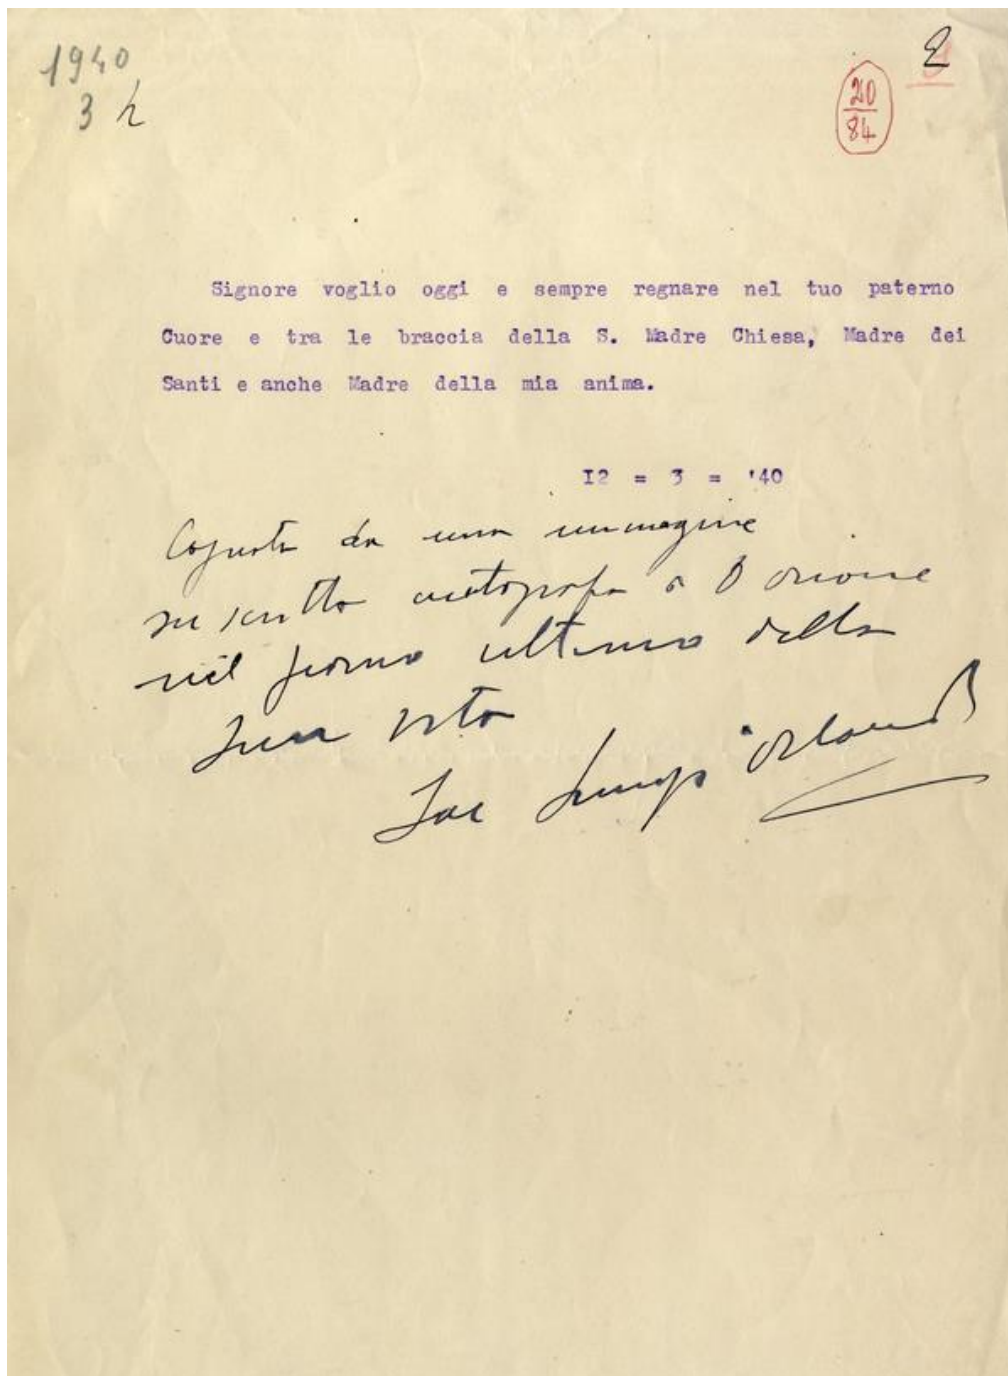 1940
3 h
2
20
84
Signore voglio oggi e sempre regnare nel tuo paterno
Cuore e tra le braccia della S. Madre Chiesa, Madre dei
Santi e anche Madre della mia anima.
I2 = 3 = '40
Copiata da una immagine
su scritto autografo D Orione
nel giorno ultimo della
sua vita
Sac Luigi Orlandi